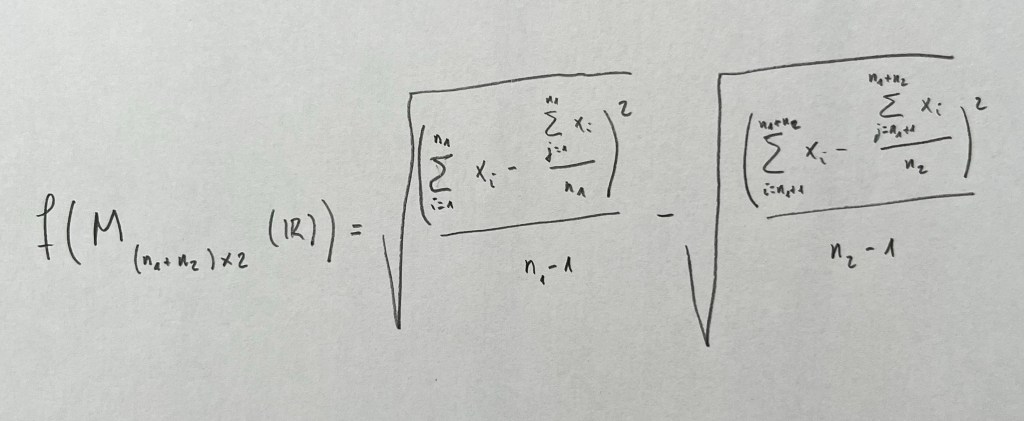 f(M_{(n_1+n_2)×2}(ℝ)) = \sqrt{\frac{(\sum_{i=1}^{n_1} x_i - \frac{\sum_{j=1}^{n_1} x_i}{n_1})^2}{n_1-1}} - \sqrt{\frac{(\sum_{i=n_1+1}^{n_1+n_2} x_i - \frac{\sum_{j=n_1+1}^{n_1+n_2} x_i}{n_2})^2}{n_2-1}}